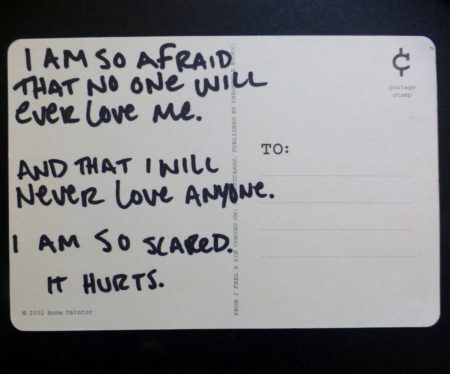 I AM SO AFRAID
THAT NO ONE WILL
EVER LOVE ME.
AND THAT I WILL
NEVER LOVE ANYONE.
I AM SO SCARED.
IT HURTS.
© 2002 Anne Taintor
FROM I FEEL A SIN COMING ON
PUBLISHED BY
¢
postage
stamp
TO: